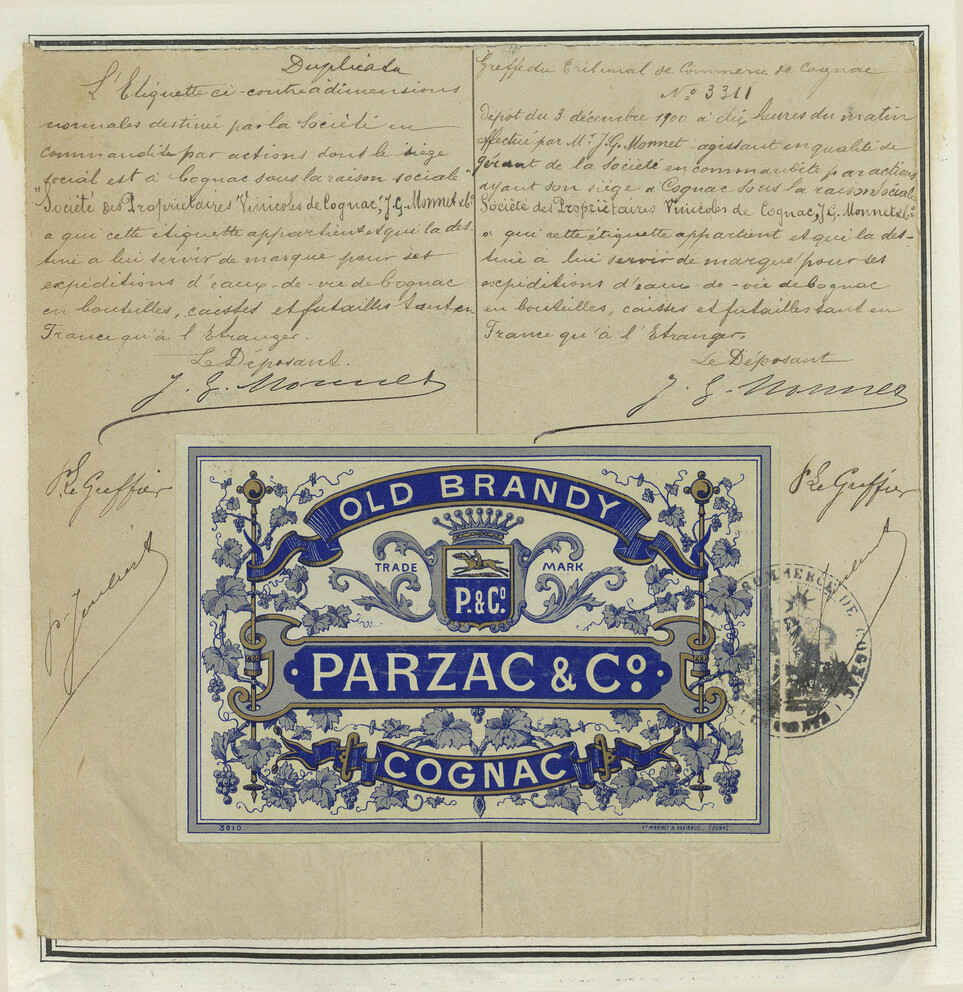 Duplicata
L'Etiquette ci-contre à dimensions
normales destinée par la Société en
commandite par actions dont le siège
social est à Cognac sous la raison sociale
"Société des Propriétaires Vinicoles de Cognac, J. G. Monnet & Cº
a qui cette étiquette appartient et qui la des
tiné a lui servir de marque pour ses
expéditions d'eaux-de-vie de Cognac
en bouteilles, caisses et futailles tant en
France qu'à l'Etranger.
Le Déposant.
J. G. Monnet
Le Greffier
Greffe du Tribunal de Commerce de Cognac
Nº 3311
dépôt du 3 décembre 1900 à dix heures du matin
effectué par Mr J. G. Monnet agissant en qualité de
gérant de la Société en commandite par actions
ayant son siège a Cognac sous la raison sociale
Société des Propriétaires Vinicoles de Cognac, J. G. Monnet & Cº
a qui cette étiquette appartient et qui la des-
tiné a lui servir de marque pour ses
expéditions d'eaux-de-vie de Cognac
en bouteilles, caisses et futailles tant en
France qu'à l'Etranger.
Le Déposant
J. G. Monnet
Le Greffier
OLD BRANDY
TRADE MARK
P. & Cº
PARZAC & Cº.
COGNAC
3810
COGNAC
COMMERCE DE COGNAC